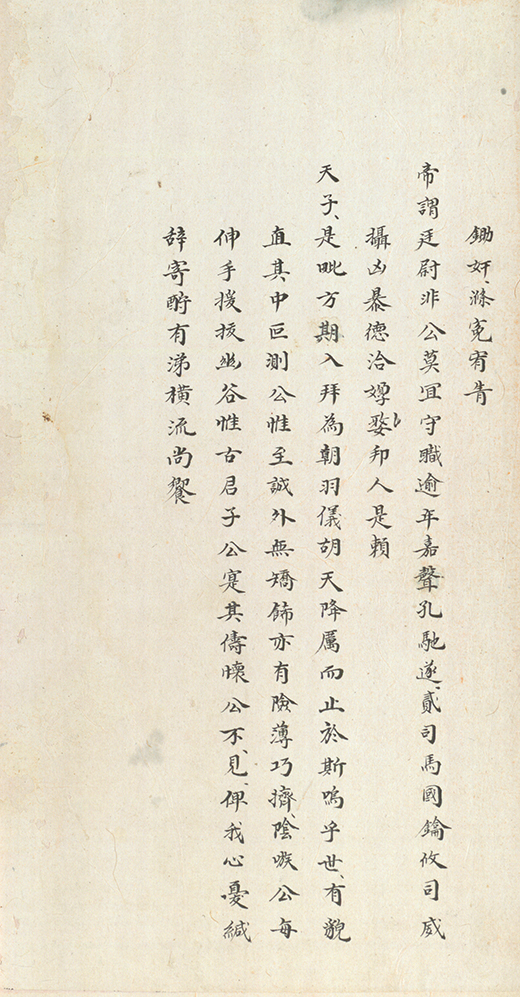 鋤奸滌寃宥眚
帝謂廷尉非公莫冝守職逾年嘉聲孔馳遂貳司馬國鑰攸司威
攝凶暴德洽婺邦人是賴
天子是毗方期入拜為朝羽儀胡天降厲而止於斯嗚乎世有貌
直其中叵測公惟至誠外無矯飾亦有險薄巧擠陰嗾公每
伸手援拔幽谷惟古君子公寔其儔懷公不見俾我心憂緘
辭寄酹有涕橫流尚饗